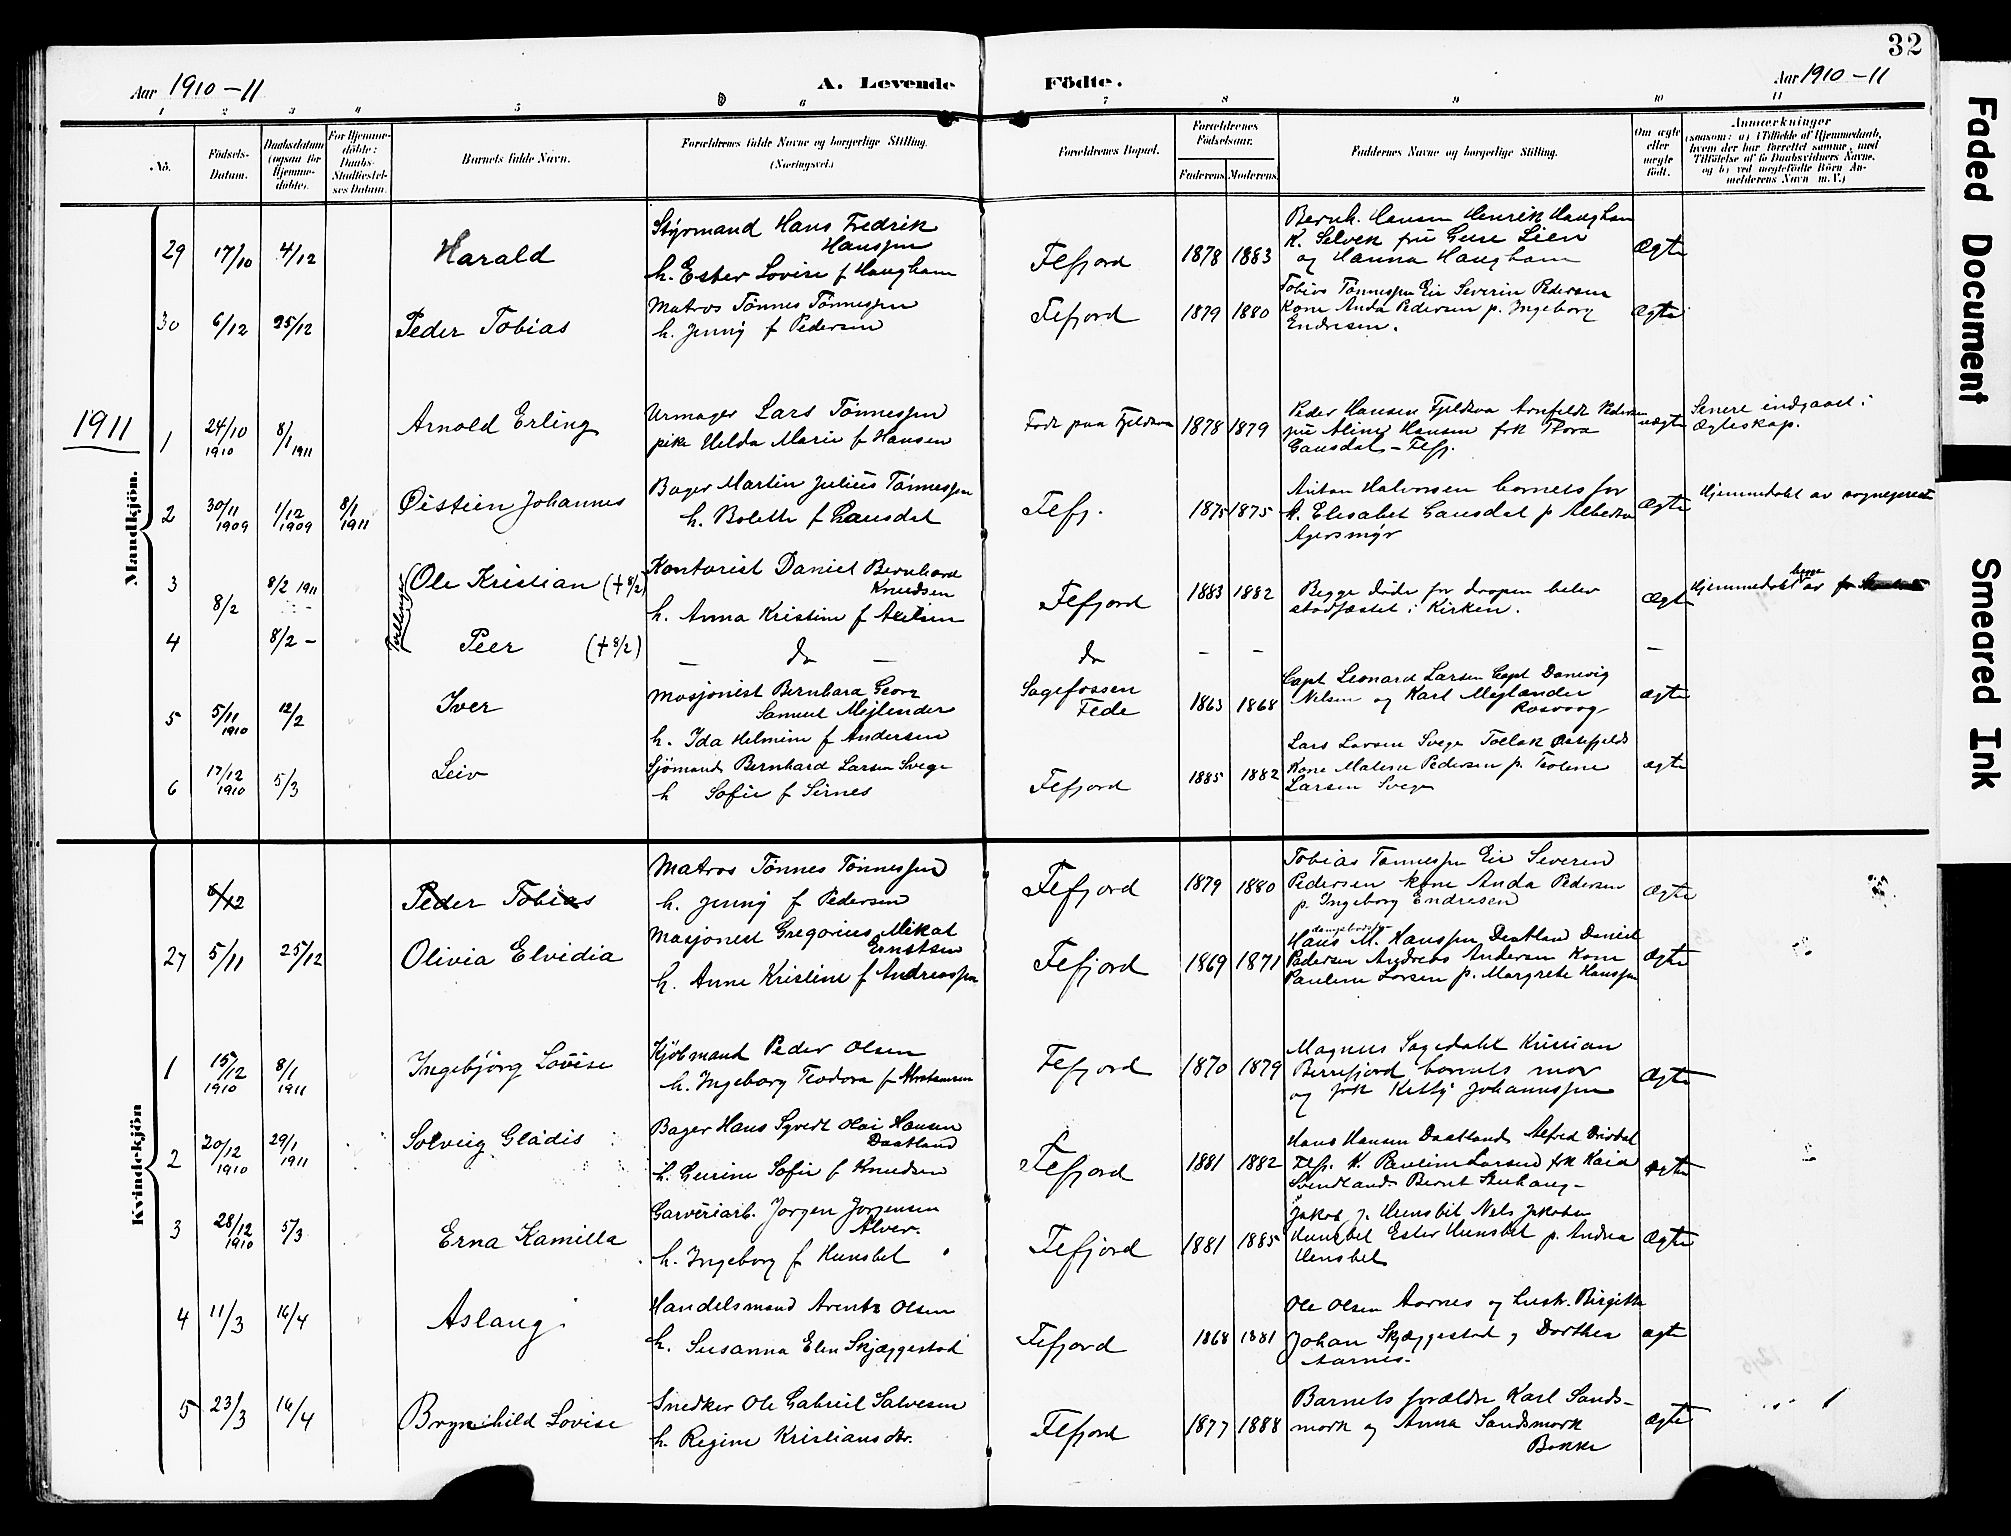 32
Aar 1910-11
A. Levende
Födte.
Aar 1910-11
1 2 3 4 5 6 7 8 9 10 11
No.
Födsels-Datum.
Daabsdatum (ogsaa for Hjemmedöbte).
For Hjemmedöbte: Daabs-Stadfæstelses Datum.
Barnets fulde Navn.
Forældrenes fulde Navne og borgerlige Stilling. (Næringsvei.)
Forældrenes Bopæl.
Forældrenes Födselsaar.
Faderens. Moderens.
Faddernes Navne og borgerlige Stilling.
Om ægte eller uægte födt.
Anmærkninger
(saasom: a) i Tilfælde af Hjemmedaab,
hvem der har forrettet samme, med
Tilföielse af to Daabsvidners Navne,
og b) ved uægtefödte Börn An-
melderens Navn m. V.)
Mandkjön.
29 17/10 4/12 Harald
Styrmand Hans Fredrik
Hanssen
h. Ester Lovise f Haugham
Flefjord 1878 1883
Bernh. Hansen Henrik Haugham
K. Selvek fru Gure Lien
og Hanna Haugham
Ægte
30 6/12 25/12 Peder Tobias
Matros Tönnes Tönnessen
h. Jenny f Pedersen
Flefjord 1879 1880
Tobias Tönnessen Eie Severin Pedersen
Kone Anda Pedersen p. Ingeborg
Endresen.
Ægte
1911
1 24/10 1910 8/1 1911 Arnold Erling
Urmager Lars Tönnessen
pike Hilda Marie f Hansen
Födt paa Fjeldsaa 1878 1879
Peder Hansen Fjeldsaa Arnfeldt Pedersen
fru Aline Hansen frk Thora
Gausdal - Flefj.
uægte
Senere indgaaet i
Ægteskap.
2 30/11 1909 1/12 1909 8/1 1911 Øistien Johannes
Bager Martin Julius Tönnessen
h. Bolette f Gausdal
Flefj. 1875 1875
Anton Halvorsen barnets far
K. Elisabet Gausdal p Albertha
Agersmyr
Ægte
Hjemmedöbt av sogneprest
3 8/2 8/2 1911 Tvillinger Ole Kristian (+ 8/2)
Kontorist Daniel Bernhard
Knudsen
h. Anna Kristine f Axelsen
Flefjord 1883 1882
Begge döde for daapen belev
stadfæstet i Kirken.
Ægte
Hjemmedöbt begge av
4 8/2 - Peer (+ 8/2)
- do -
do - - -
5 5/11 1910 12/2 Iver
Masjonist Bernhard Georg
Samuel Mejlender
h. Ida Helmine f Andersen
Sagefossen
Fede 1863 1868
Capt Leonard Larsen Capt Danevig
Nelsen og Karl Mejlænder
Rosvoog
Ægte
6 17/12 1910 5/3 Leiv
Sjömand Bernhard Larsen Svege
h Sofie f Sirnes
Flefjord 1885 1882
Lars Larsen Svege Tollak
Kone Malene Pedersen p. Teoline
Larsen Svege
Ægte
Kvindekjön
6/12 Peder Tobias
Matros Tönnes Tönnessen
h. Jenny f Pedersen
Flefjord 1879 1880
Tobias Tönnessen Eie Severin
Pedersen kone Anda Pedersen
p. Ingeborg Endresen
Ægte
27 5/11 25/12 Olivia Elvidia
Masjonist Gregorius Mikal
Ernstsen
h. Anne Kristine f Andreassen
Flefjord 1869 1871
Hans M. Hanssen Daatland Daniel
Pedersen Andreas Andersen Kone
Pauline Larsen p. Margrete Hanssen
Ægte
1 15/12 1910 8/1 1911 Ingebjörg Lovise
Kjöbmand Peder Olsen
h. Ingeborg Teodora f Mortensen
Flefjord 1870 1879
Magnus Sagedahl Kristian
Berrefjord barnets mor
og frk Ketty Johannessen
Ægte
2 20/12 1910 29/1 1911 Solveig Gladis
Bager Hans Syvert Olai Hansen
Daatland
h. Gurine Sofie f Knudsen
Flefjord 1881 1882
Hans Hansen Daatland Alfred Drivdal
Flfj. K. Pauline Larsen frk Kaia
Svendland. Bernt Stuhaug -
Ægte
3 28/12 1910 5/3 Erna Kamilla
Garveriarb. Jørgen Jørgensen
Alver.
h. Ingeborg f Hunsbet
Flefjord 1881 1885
Jakob J. Hunsbet Nels Jakobsen
Hunsbet Ester Hunsbet p. Andrea
Hunsbet
Ægte
4 11/3 16/4 Aslaug
Handelsmand Arents Olsen
h. Susanna Elen Skjæggestad
Flefjord 1868 1881
Ole Olsen Aarnes og hust. Birgitte
Johan Skjæggestad og Dorthea
Aarnes.
Ægte
5 23/3 16/4 Brynhild Lovise
Snedker Ole Gabriel Salvesen
h. Regine Kristiansdtr.
Flefjord 1877 1888
Barnets forældre Karl Sands-
mark og Anna Sandsmark
Bakke
Ægte
Faded Document
Smeared Ink